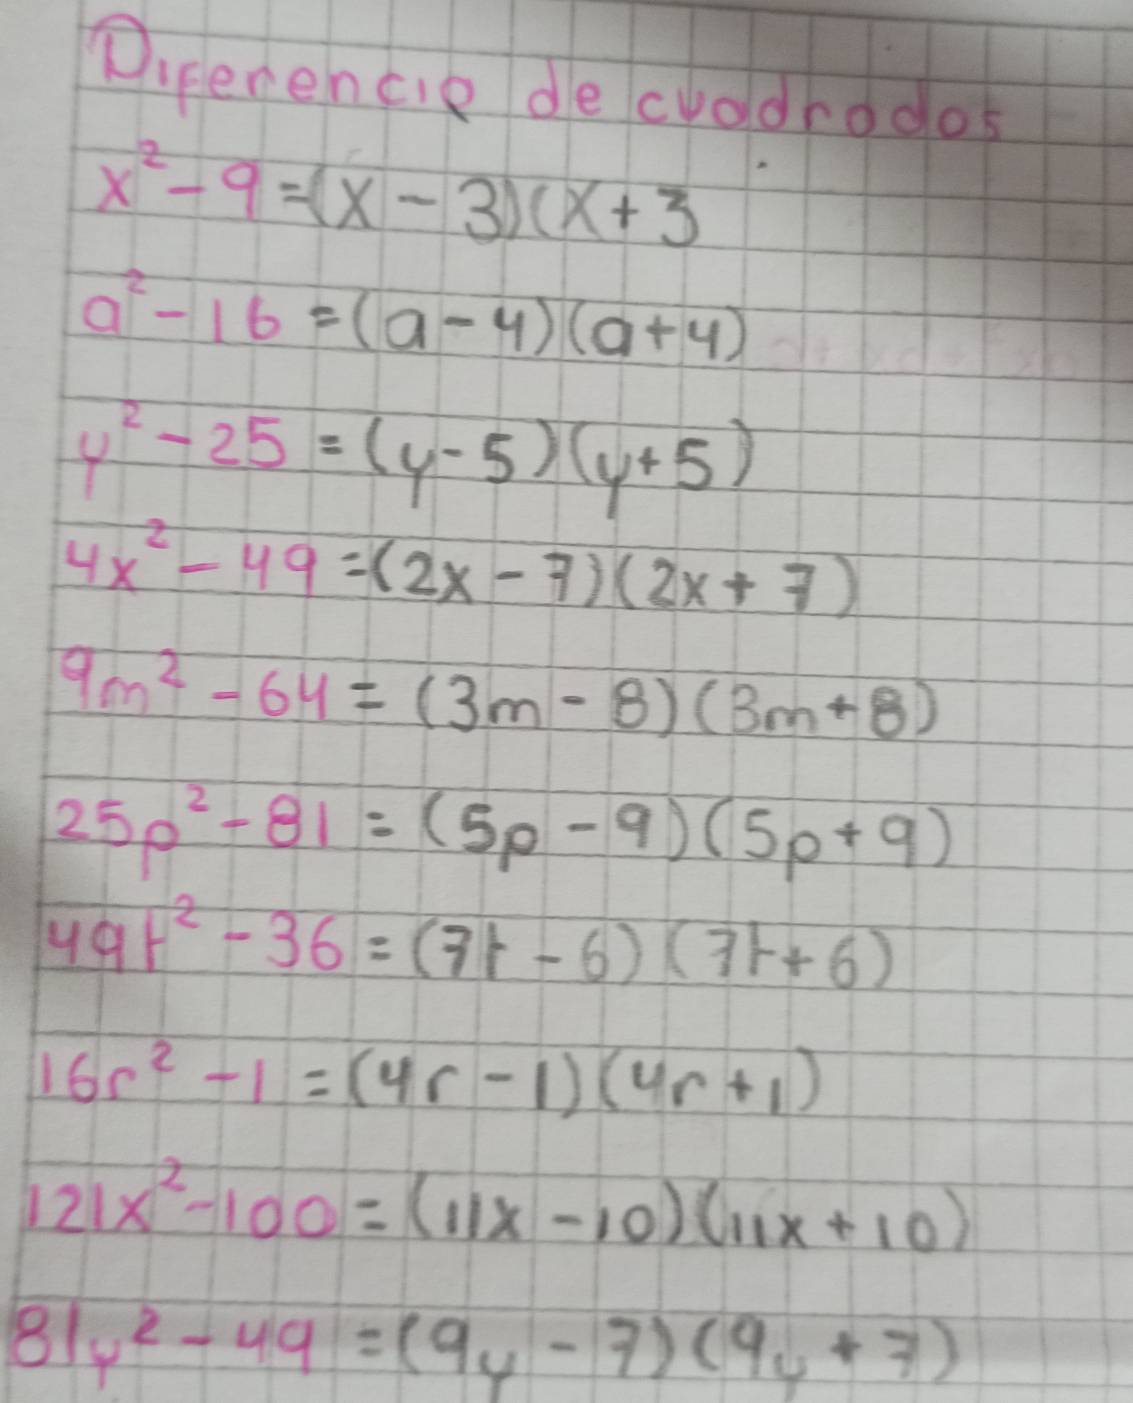 Diferencia de cuadrados
x² - 9 = (x - 3)(x + 3
a² - 16 = (a - 4)(a + 4)
y² - 25 = (y - 5)(y + 5)
4x² - 49 = (2x - 7)(2x + 7)
9m² - 64 = (3m - 8)(3m + 8)
25p² - 81 = (5p - 9)(5p + 9)
49t² - 36 = (7t - 6)(7t + 6)
16r² - 1 = (4r - 1)(4r + 1)
121x² - 100 = (11x - 10)(11x + 10)
81y² - 49 = (9y - 7)(9y + 7)